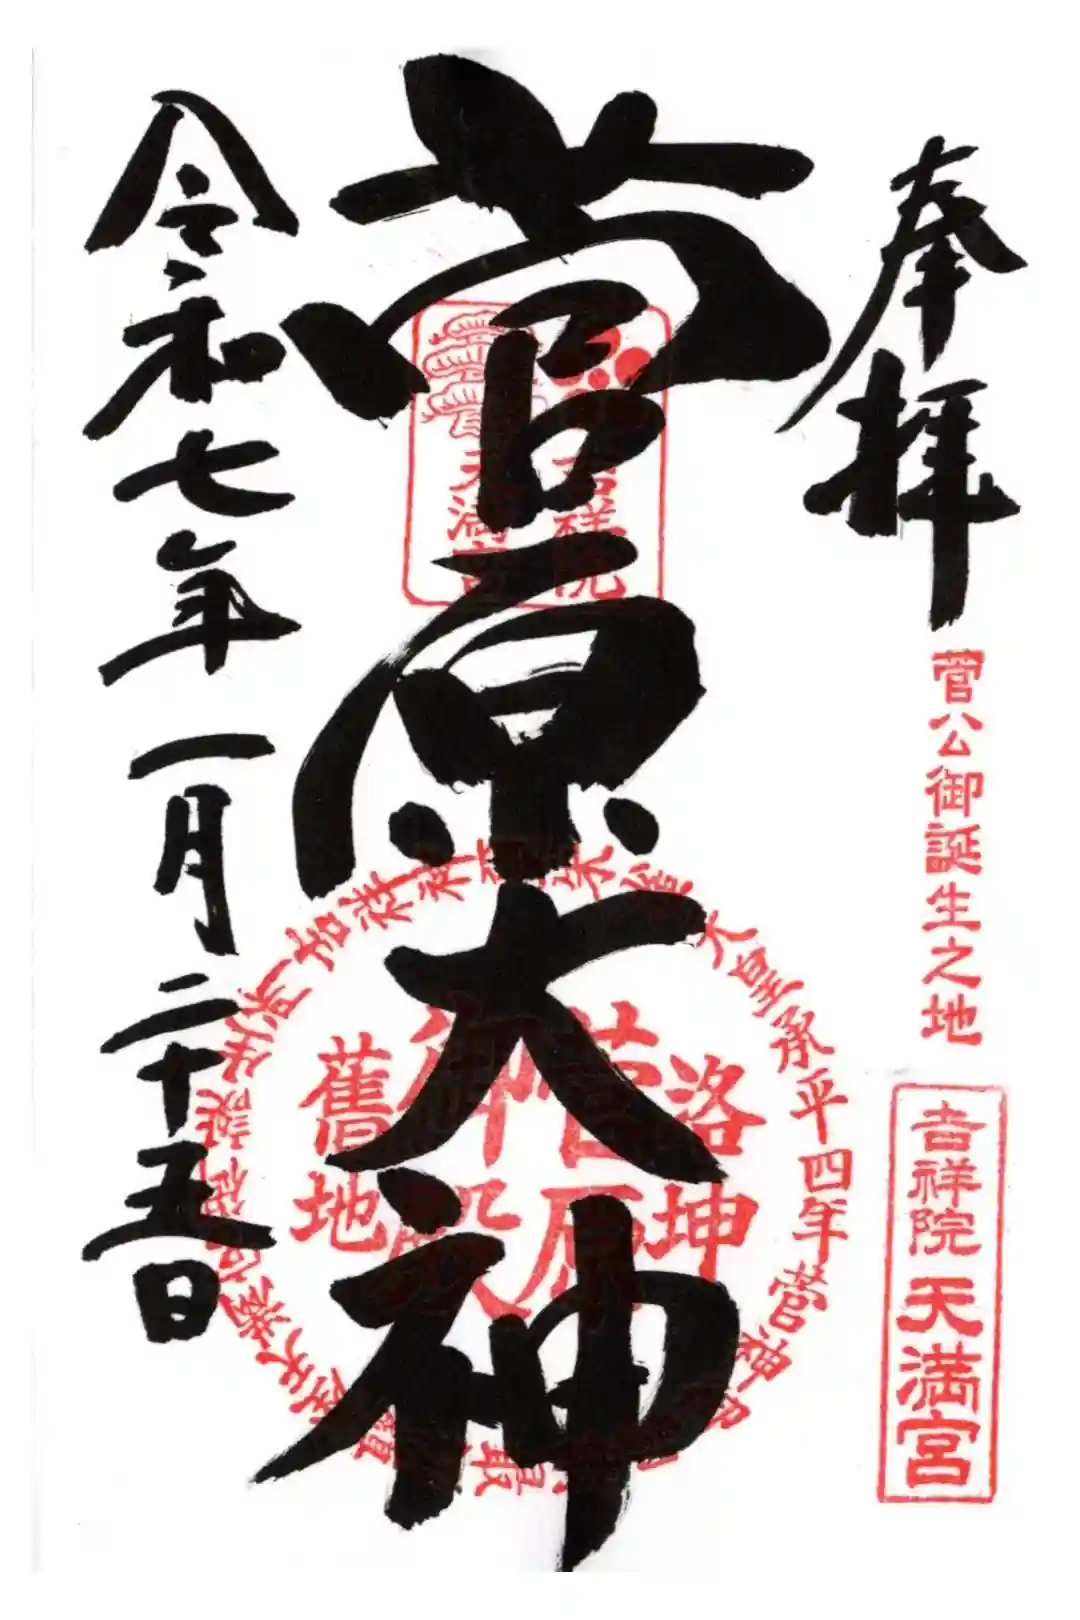 奉拝
菅公御誕生之地
吉祥院天満宮
菅原大神
吉祥院
天満宮
洛坤
菅原
御殿
舊地
皇承平四年菅神
令和七年一月二十五日